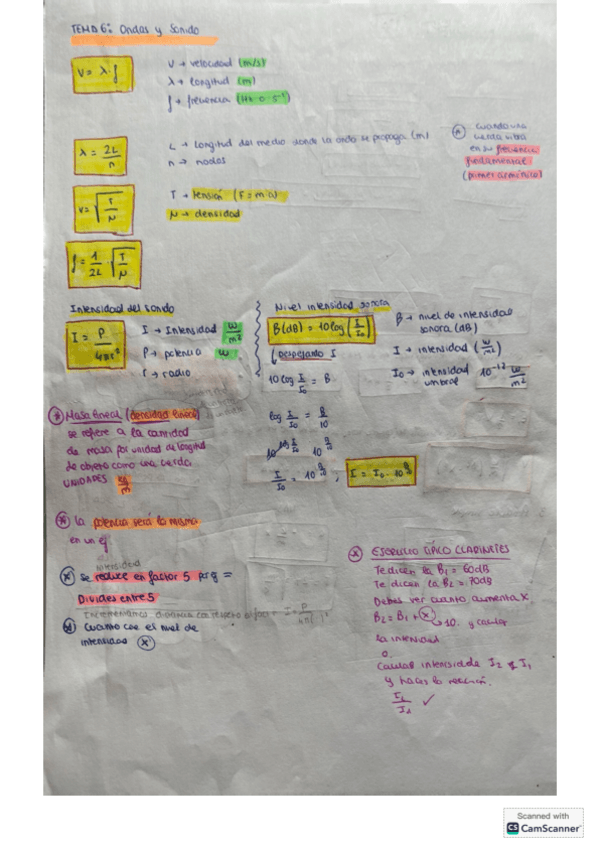 TEMA 6: Ondas y Sonido
V = λ · f
V → velocidad (m/s)
λ → longitud (m)
f → frecuencia (Hz o s⁻¹)
λ = 2L/n
L → longitud del medio donde la onda se propaga (m)
n → nodos
* cuando una cuerda vibra
en su frecuencia
fundamental
(primer armónico)
v = √(T/μ)
T → tensión (F = m·a)
μ → densidad
f = 1/2L · √(T/μ)
Intensidad del sonido
I = P/4πr²
I → Intensidad w/m²
P → potencia w
r → radio
Nivel intensidad sonora
B(dB) = 10 log (I/I₀)
B → nivel de intensidad
sonora (dB)
I → intensidad (w/m²)
I₀ → intensidad 10⁻¹² w/m²
umbral
Despejando I
10 log I/I₀ = B
log I/I₀ = B/10
10^(log I/I₀) 10^(B/10)
I/I₀ = 10^(B/10) ; I = I₀ · 10^(B/10)
* Masa lineal (densidad lineal)
se refiere a la cantidad
de masa por unidad de longitud
de objeto como una cuerda.
UNIDADES kg/m
* la potencia será la misma
en un ej
intensidad
* se reduce en factor 5 =
Dividir entre 5
I = P/4πr²
Cuanto cae el nivel de
intensidad *
* EJERCICIO TÍPICO CLARINETES
Te dicen la B₁ = 60dB
Te dicen la B₂ = 70dB
Debes ver cuanto aumenta x
B₂ = B₁ + x → 10. y calcular
la intensidad
o
calcular intensidad de I₂ y I₁
y haces la relación.
Scanned with
CS CamScanner